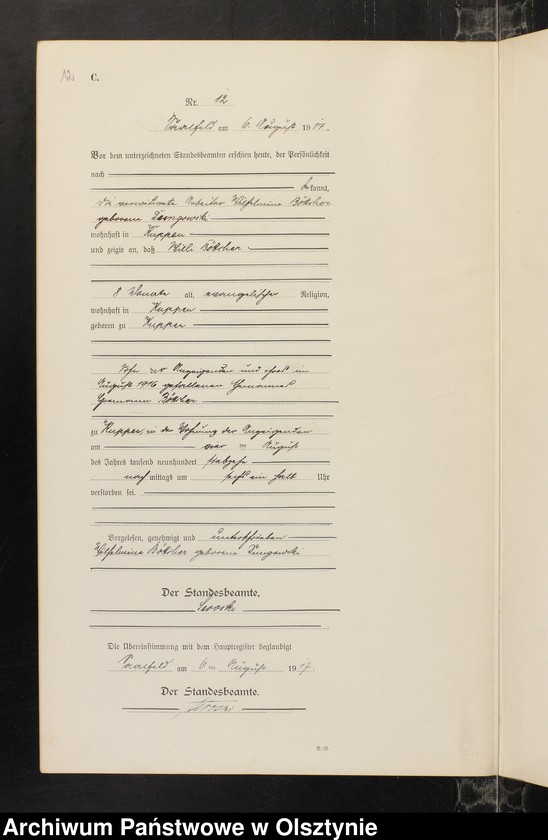 12.
C.
Nr. 12
Saalfeld am 6. August 1917.
Vor dem unterzeichneten Standesbeamten erschien heute, der Persönlichkeit
nach
bekannt,
die verwitwete Arbeiter Wilhelmine Böttcher
geborene
wohnhaft in Kuppen
und zeigte an, daß Willi Böttcher
8 Monate alt, evangelischer Religion,
wohnhaft in Kuppen
geboren zu Kuppen
Sohn der Anzeigenden und ihres im
August 1916 gefallenen Ehemannes
Hermann Böttcher
zu Kuppen, in der Wohnung der Anzeigenden
am vier August
des Jahres tausend neunhundert siebzehn
nachmittags um sechs ein halb Uhr
verstorben sei.
Vorgelesen, genehmigt und unterschrieben
Wilhelmine Böttcher geborene
Der Standesbeamte.
Die Übereinstimmung mit dem Hauptregister beglaubigt
Saalfeld am 6ten August 1917.
Der Standesbeamte.
Archiwum Państwowe w Olsztynie